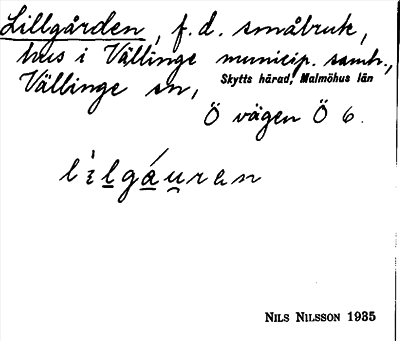 Lillgården, f.d. småbruk,
hus i Vällinge municip. samh.,
Vällinge sn, Skytts härad, Malmöhus län
Ö vägen Ö 6.
lìlgáuran
NILS NILSSON 1935